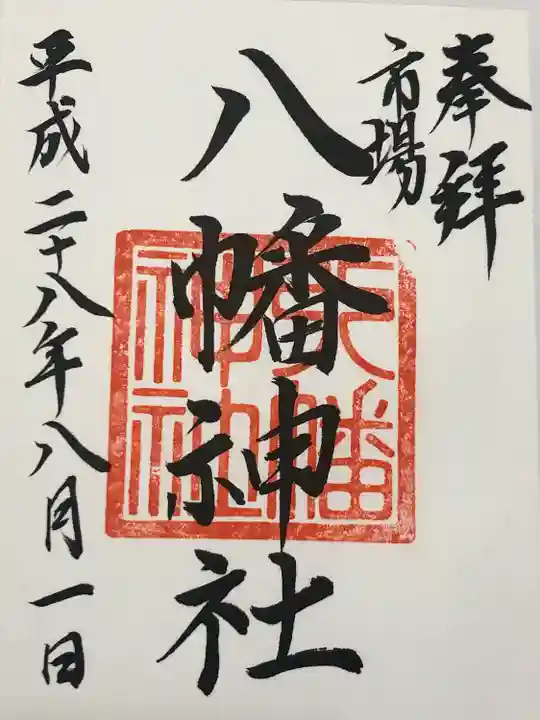 奉拝
市場
八幡神社
平成二十八年八月一日
八幡
神社